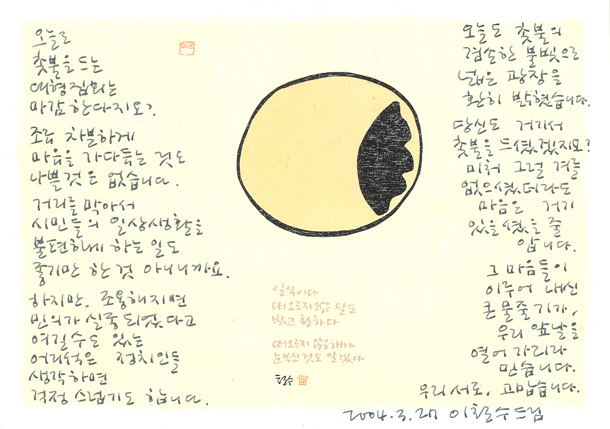 오늘로
촛불을 드는
대형집회는
마감한다지요?
조금 차분하게
마음을 가다듬는 것도
나쁠 것은 없습니다.
거리를 막아서
시민들의 일상생활을
불편하게 하는 일도
좋기만 한 것 아니니까요.
하지만, 조용해지면
민의가 실종되었다고
여길 수도 있는
어리석은 정치인들
생각하면
걱정스럽기도 합니다.
일식이다
떠오르지 않은 달도
밝고 환하다
떠오르지 않은 해가
눈부신 것도 알겠다
철수
오늘도 촛불의
겸손한 불빛으로
넓은 광장을
환히 밝혔습니다.
당신도 거기서
촛불을 드셨겠지요?
미처 그럴 겨를
없으셨더라도
마음은 거기
있을셨을 줄
압니다.
그 마음들이
이루어 내신
큰 물줄기가,
우리 앞날을
열어 가리라
믿습니다.
우리 서로, 고맙습니다.
2004.3.27 이철수 드림